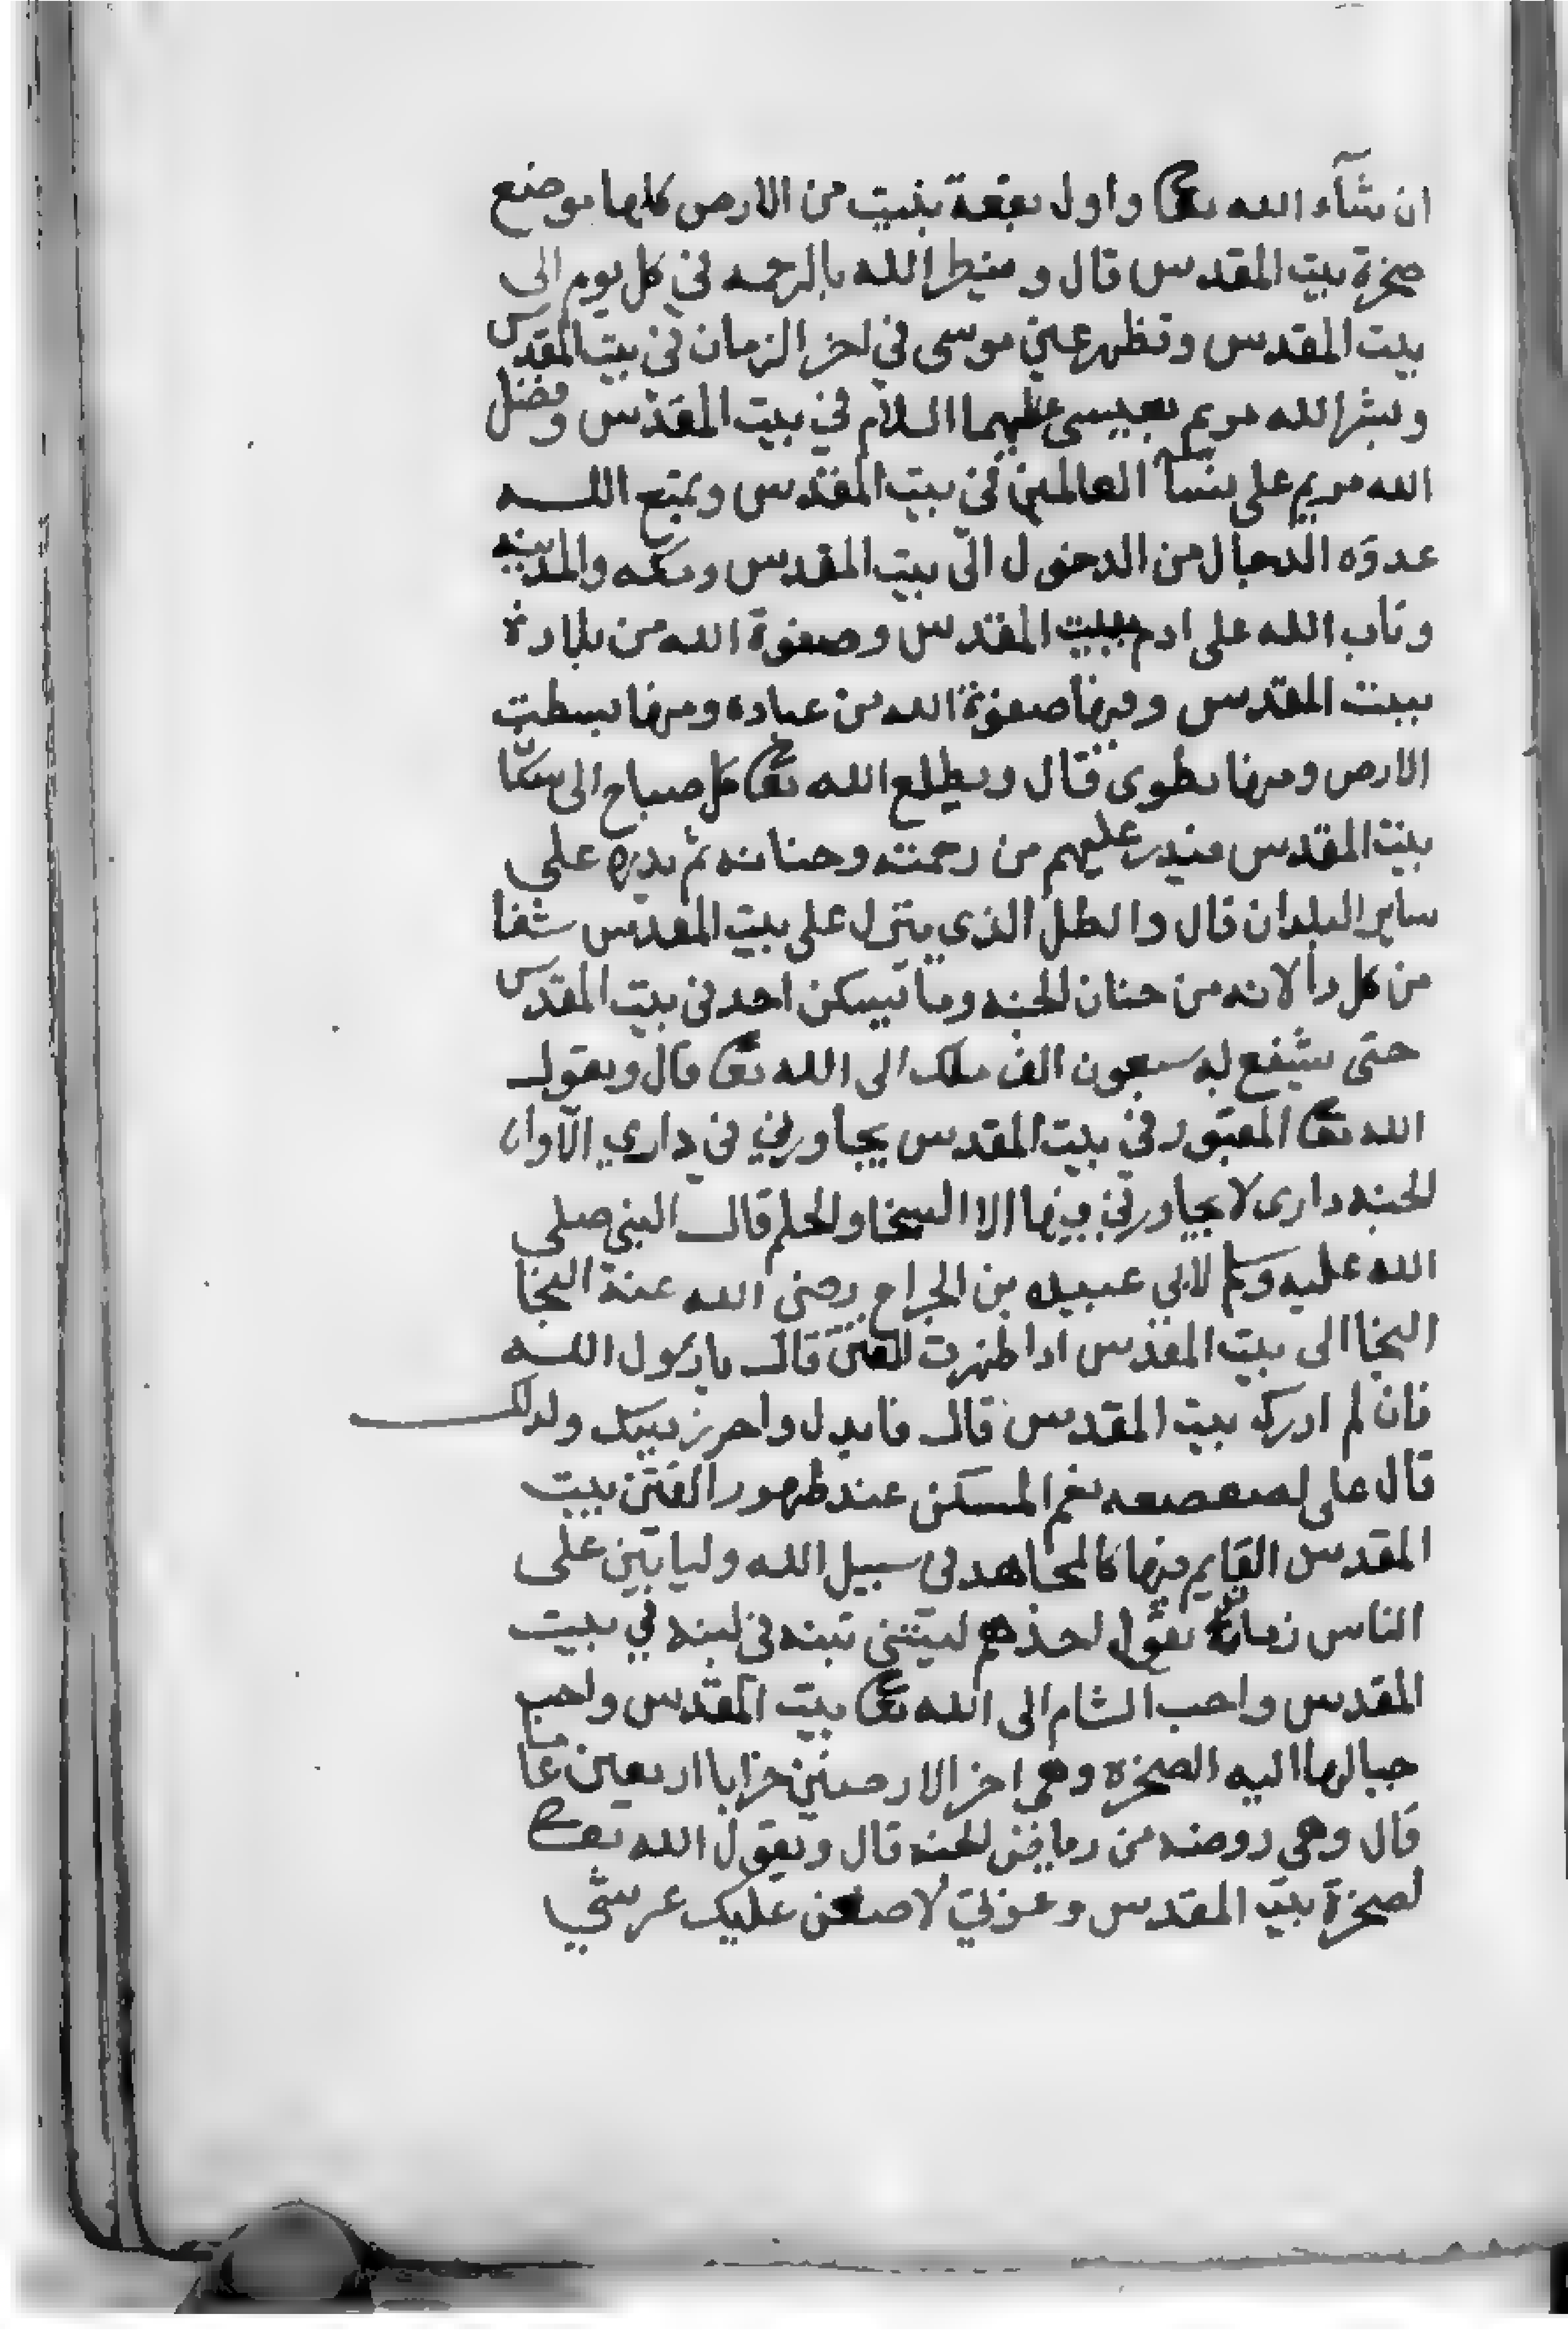 ان شآء الله تعالى واول بقعة بنيت من الارض كلها موضع
صخرة بيت المقدس قال وينظر الله بالرحمه في كل يوم الى
بيت المقدس وتظهر عين موسى في اخر الزمان في بيت المقدس
وبشر الله مريم بعيسى عليهما السلام في بيت المقدس وفضل
الله مريم على نسآ العالمين في بيت المقدس ويمنع اللـــه
عدوه الدجال من الدخول الى بيت المقدس ومكه والمدينه
وتاب الله على ادم ببيت المقدس وصفوة الله من بلاده
بيت المقدس وفيها صفوة الله من عباده ومنها بسطت
الارض ومنها تطوى قال ويطلع الله تعالى كل صباح الى سكان
بيت المقدس فيدر عليهم من رحمته وحنانه ثم يدره على
ساير البلدان قال والطل الذي ينزل على بيت المقدس شفا
من كل دأ لانه من حنان الجنه وما يسكن احد في بيت المقدس
حتى يشفع له سبعون الف ملك الى الله تعالى قال ويقول
الله تعالى المقبور في بيت المقدس يجاورني في داري الا وان
الجنه دارى لا يجاورني فيها الا السخا والحلم قال النبي صلى
الله عليه وسلم لابي عبيده بن الجراح رضى الله عنه النجا
النجا الى بيت المقدس اذا ظهرت الفتن قال يا رسول اللـه
فان لم ادرك بيت المقدس قال فابذل واحرز دينك ولذلك
قال على لصعصعه نعم المسكن عند ظهور الفتن بيت
المقدس القايم فيها كالمجاهد في سبيل الله وليا تين على
الناس زمان يقول احدهم ليتني تبنه في لبنه في بيت
المقدس واحب الشام الى الله تعالى بيت المقدس واحب
جبالها اليه الصخره وهى اخر الارضين خرابا اربعين عاما
قال وهي روضه من رياض الجنه قال ويقول الله تعالى
لصخرة بيت المقدس وعزتي لاضعن عليك عرشي